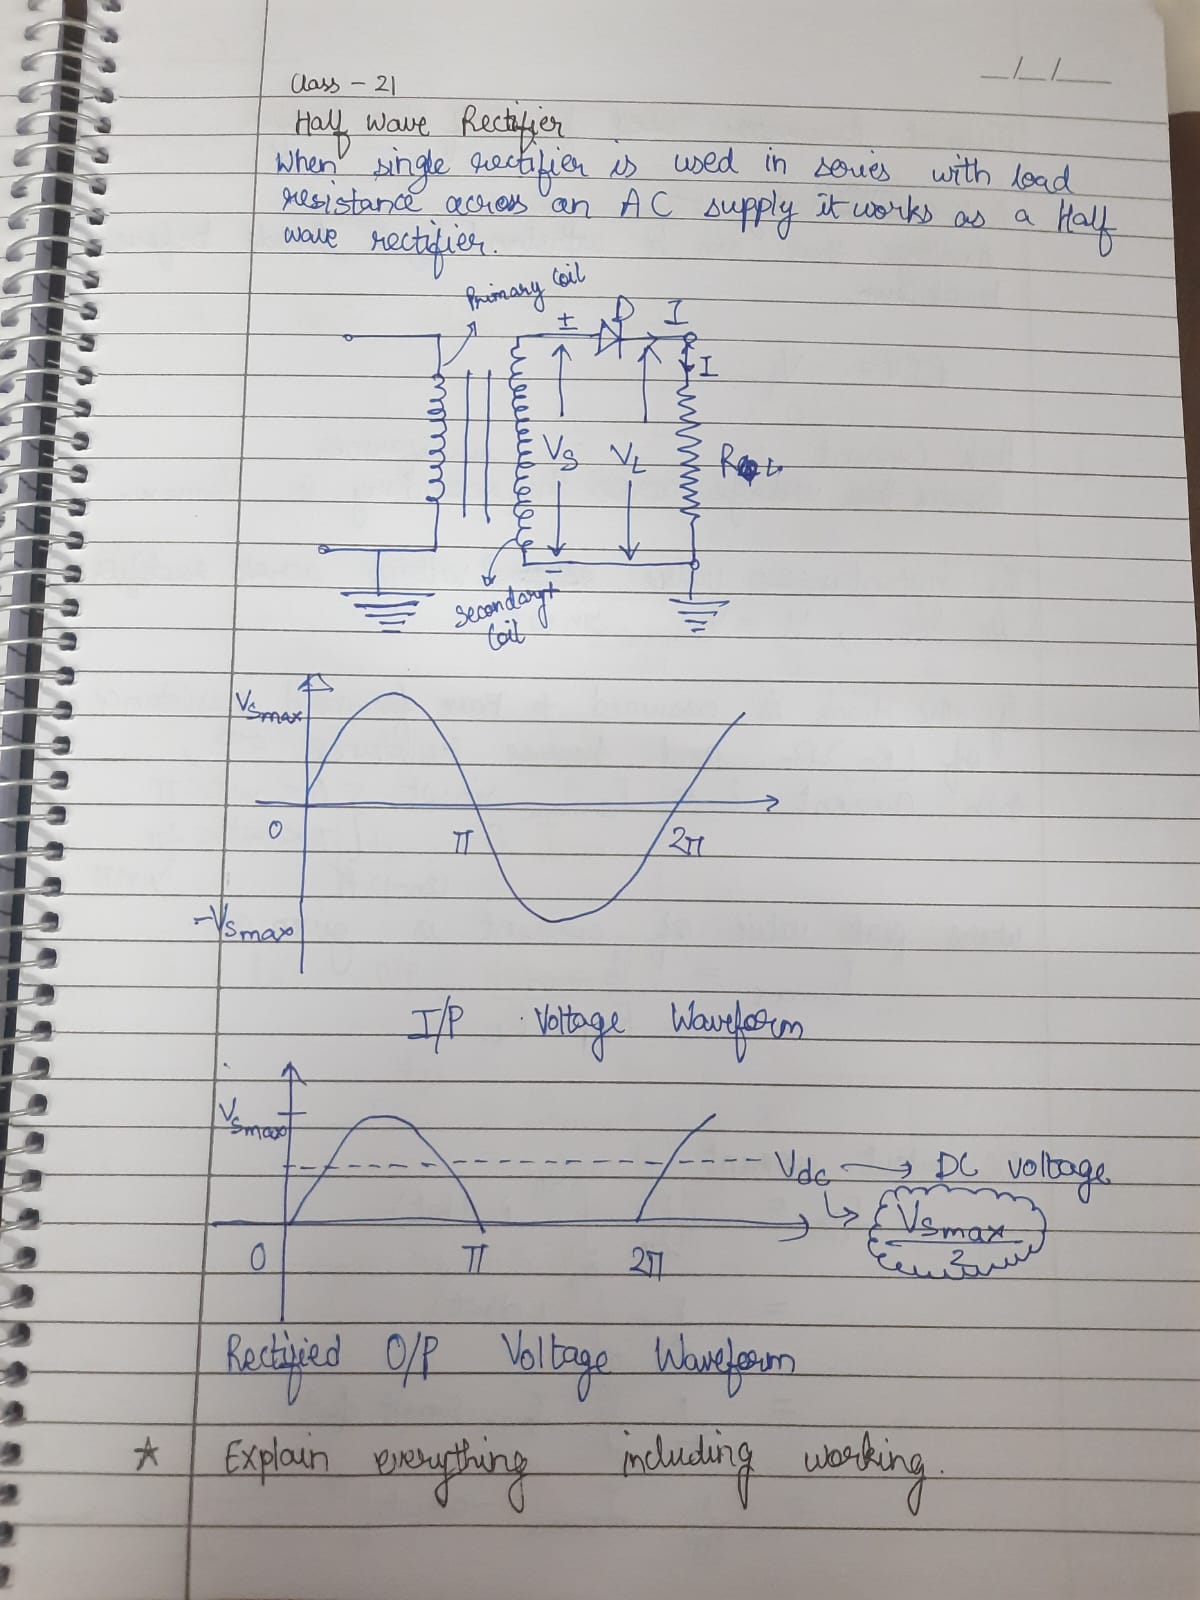 _/_/__
Class - 21
Half Wave Rectifier
When single rectifier is used in series with load
resistance across an AC supply it works as a Half
wave rectifier.
Primary Coil
±
D
I
I
VS
VL
RL
-
+
Secondary
Coil
VSmax
0
π
2π
-VSmax
I/P Voltage Waveform
VSmax
Vdc → DC voltage
↳ VSmax/2
0
π
2π
Rectified O/P Voltage Waveform
☆ Explain everything including working.